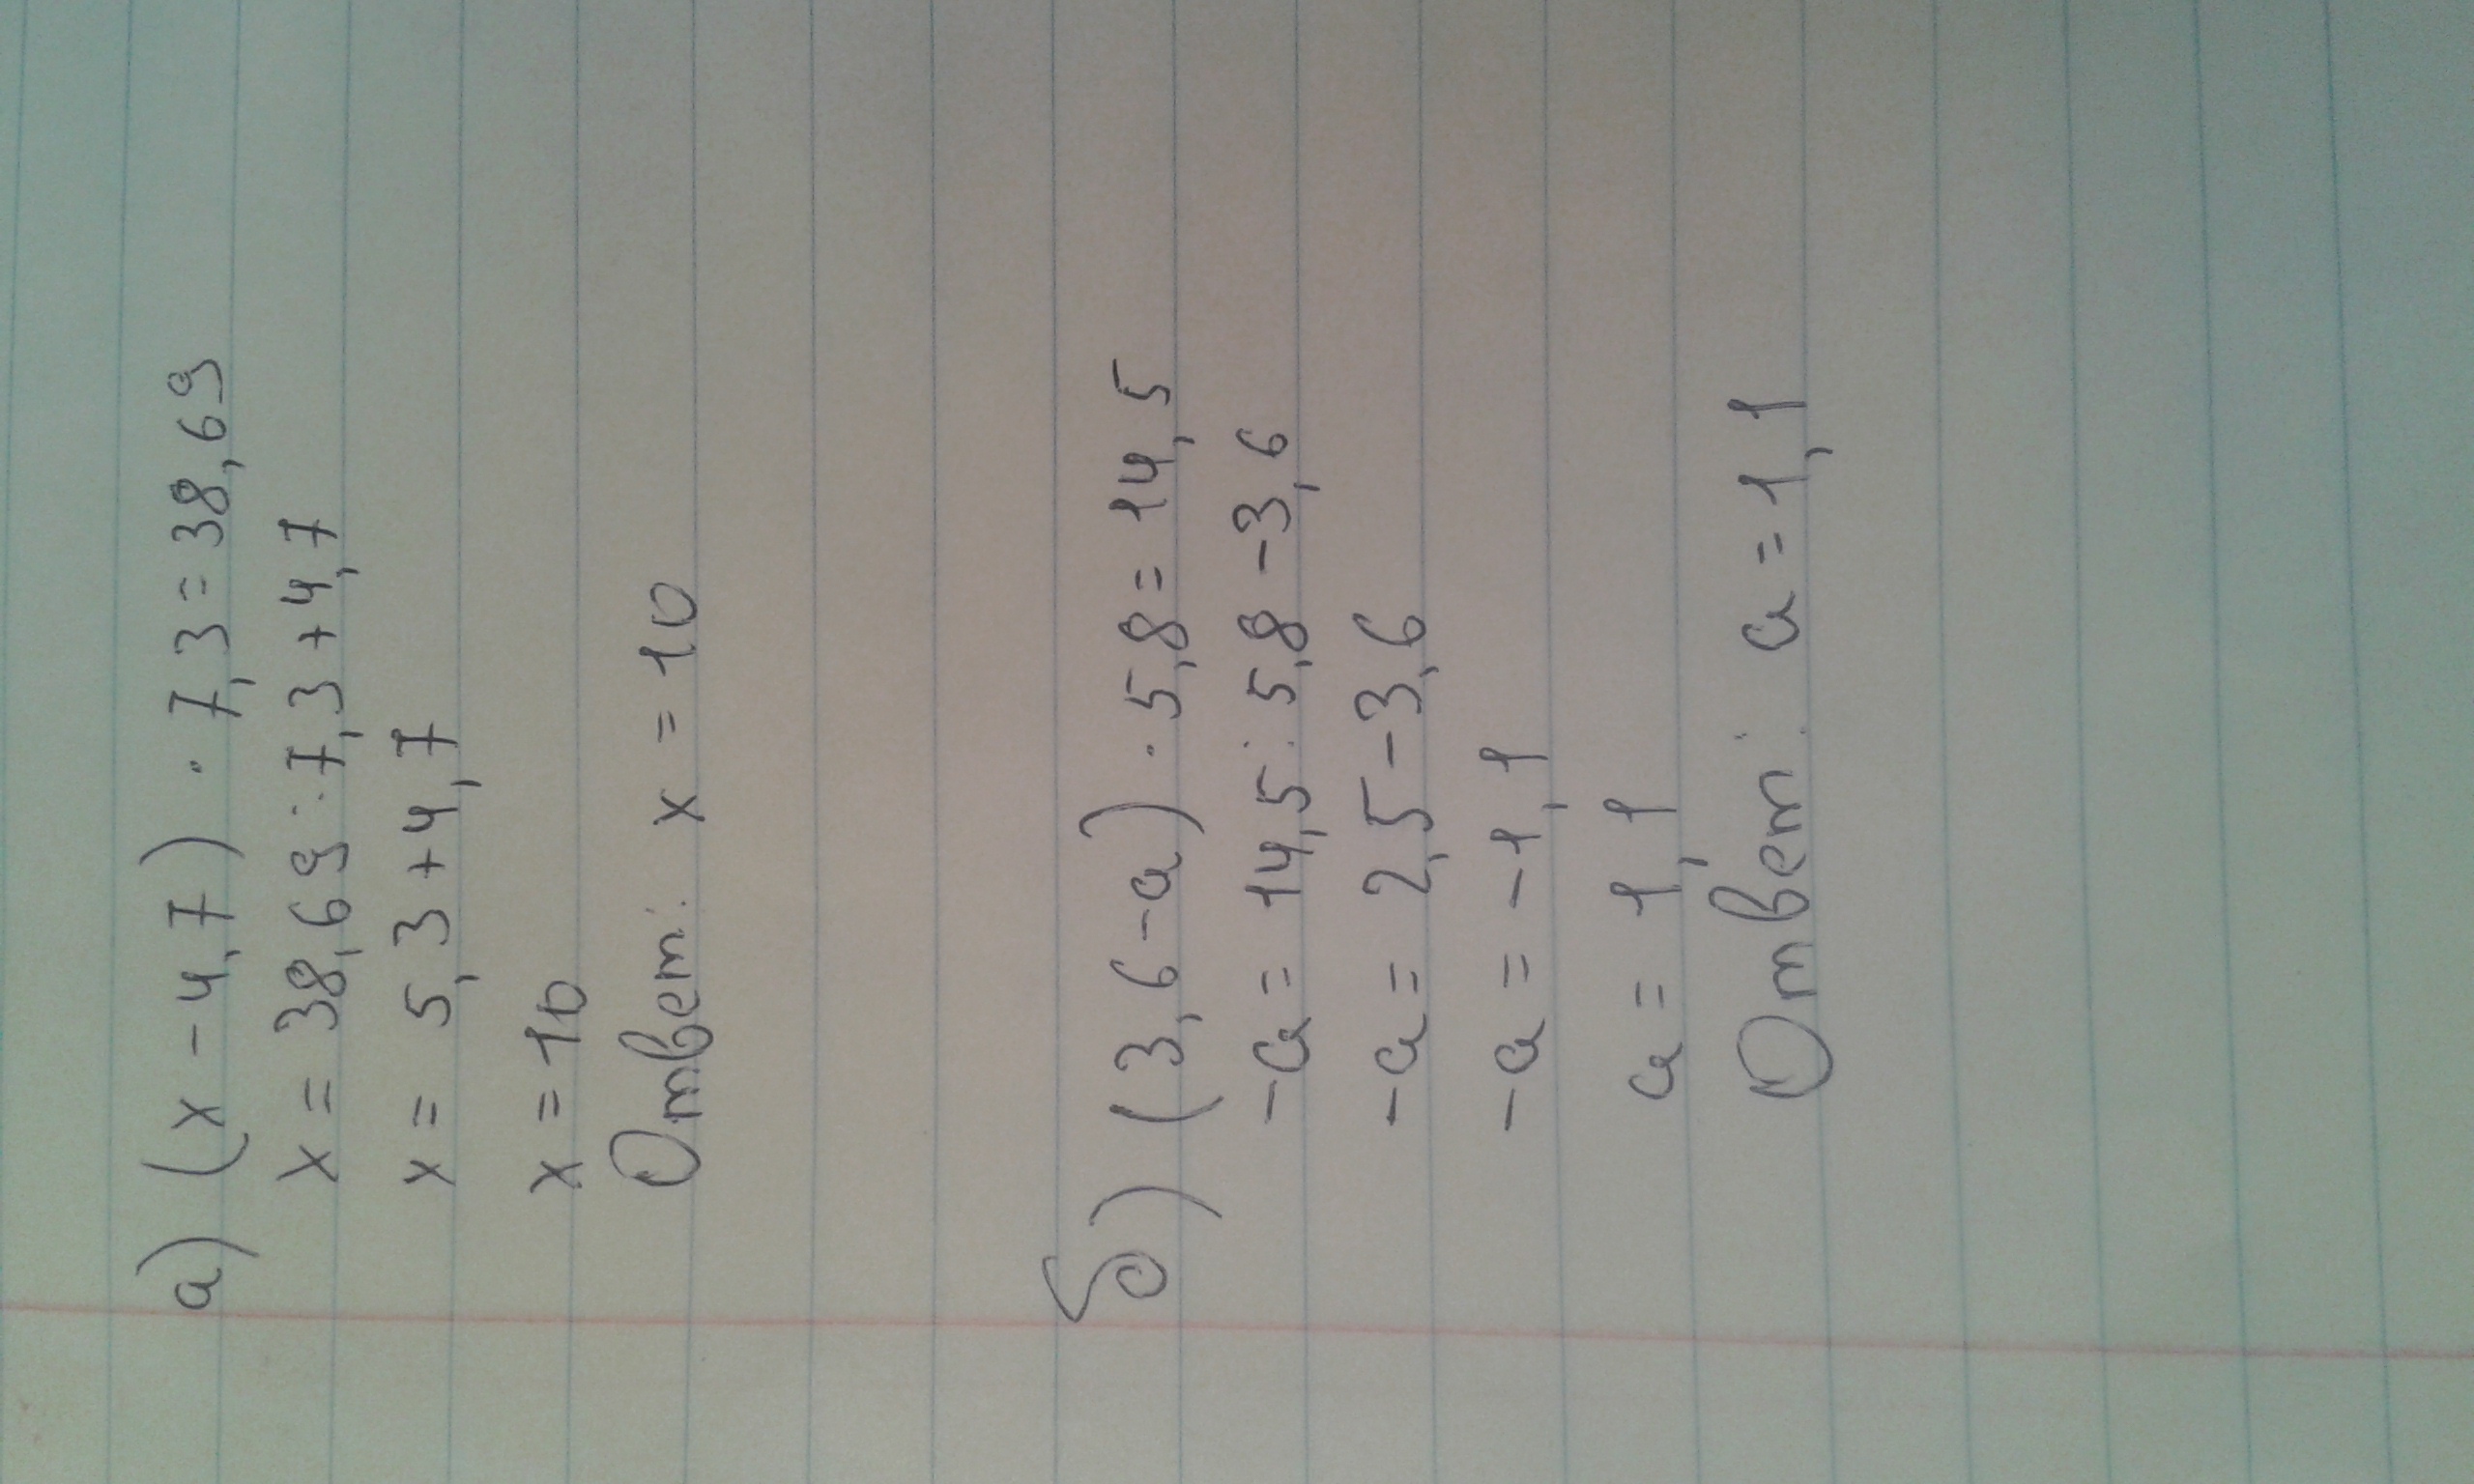 а) (x - 4,7) · 7,3 = 38,69
x = 38,69 : 7,3 + 4,7
x = 5,3 + 4,7
x = 10
Ответ: x = 10
б) (3,6 - a) · 5,8 = 14,5
-a = 14,5 : 5,8 - 3,6
-a = 2,5 - 3,6
-a = -1,1
a = 1,1
Ответ: a = 1,1